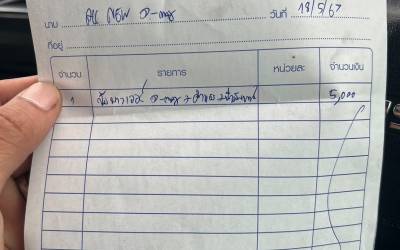 นาม ALL NEW D-max วันที่ 19/5/67
ที่อยู่
จำนวน รายการ หน่วยละ จำนวนเงิน
1 D-max + + 5,000